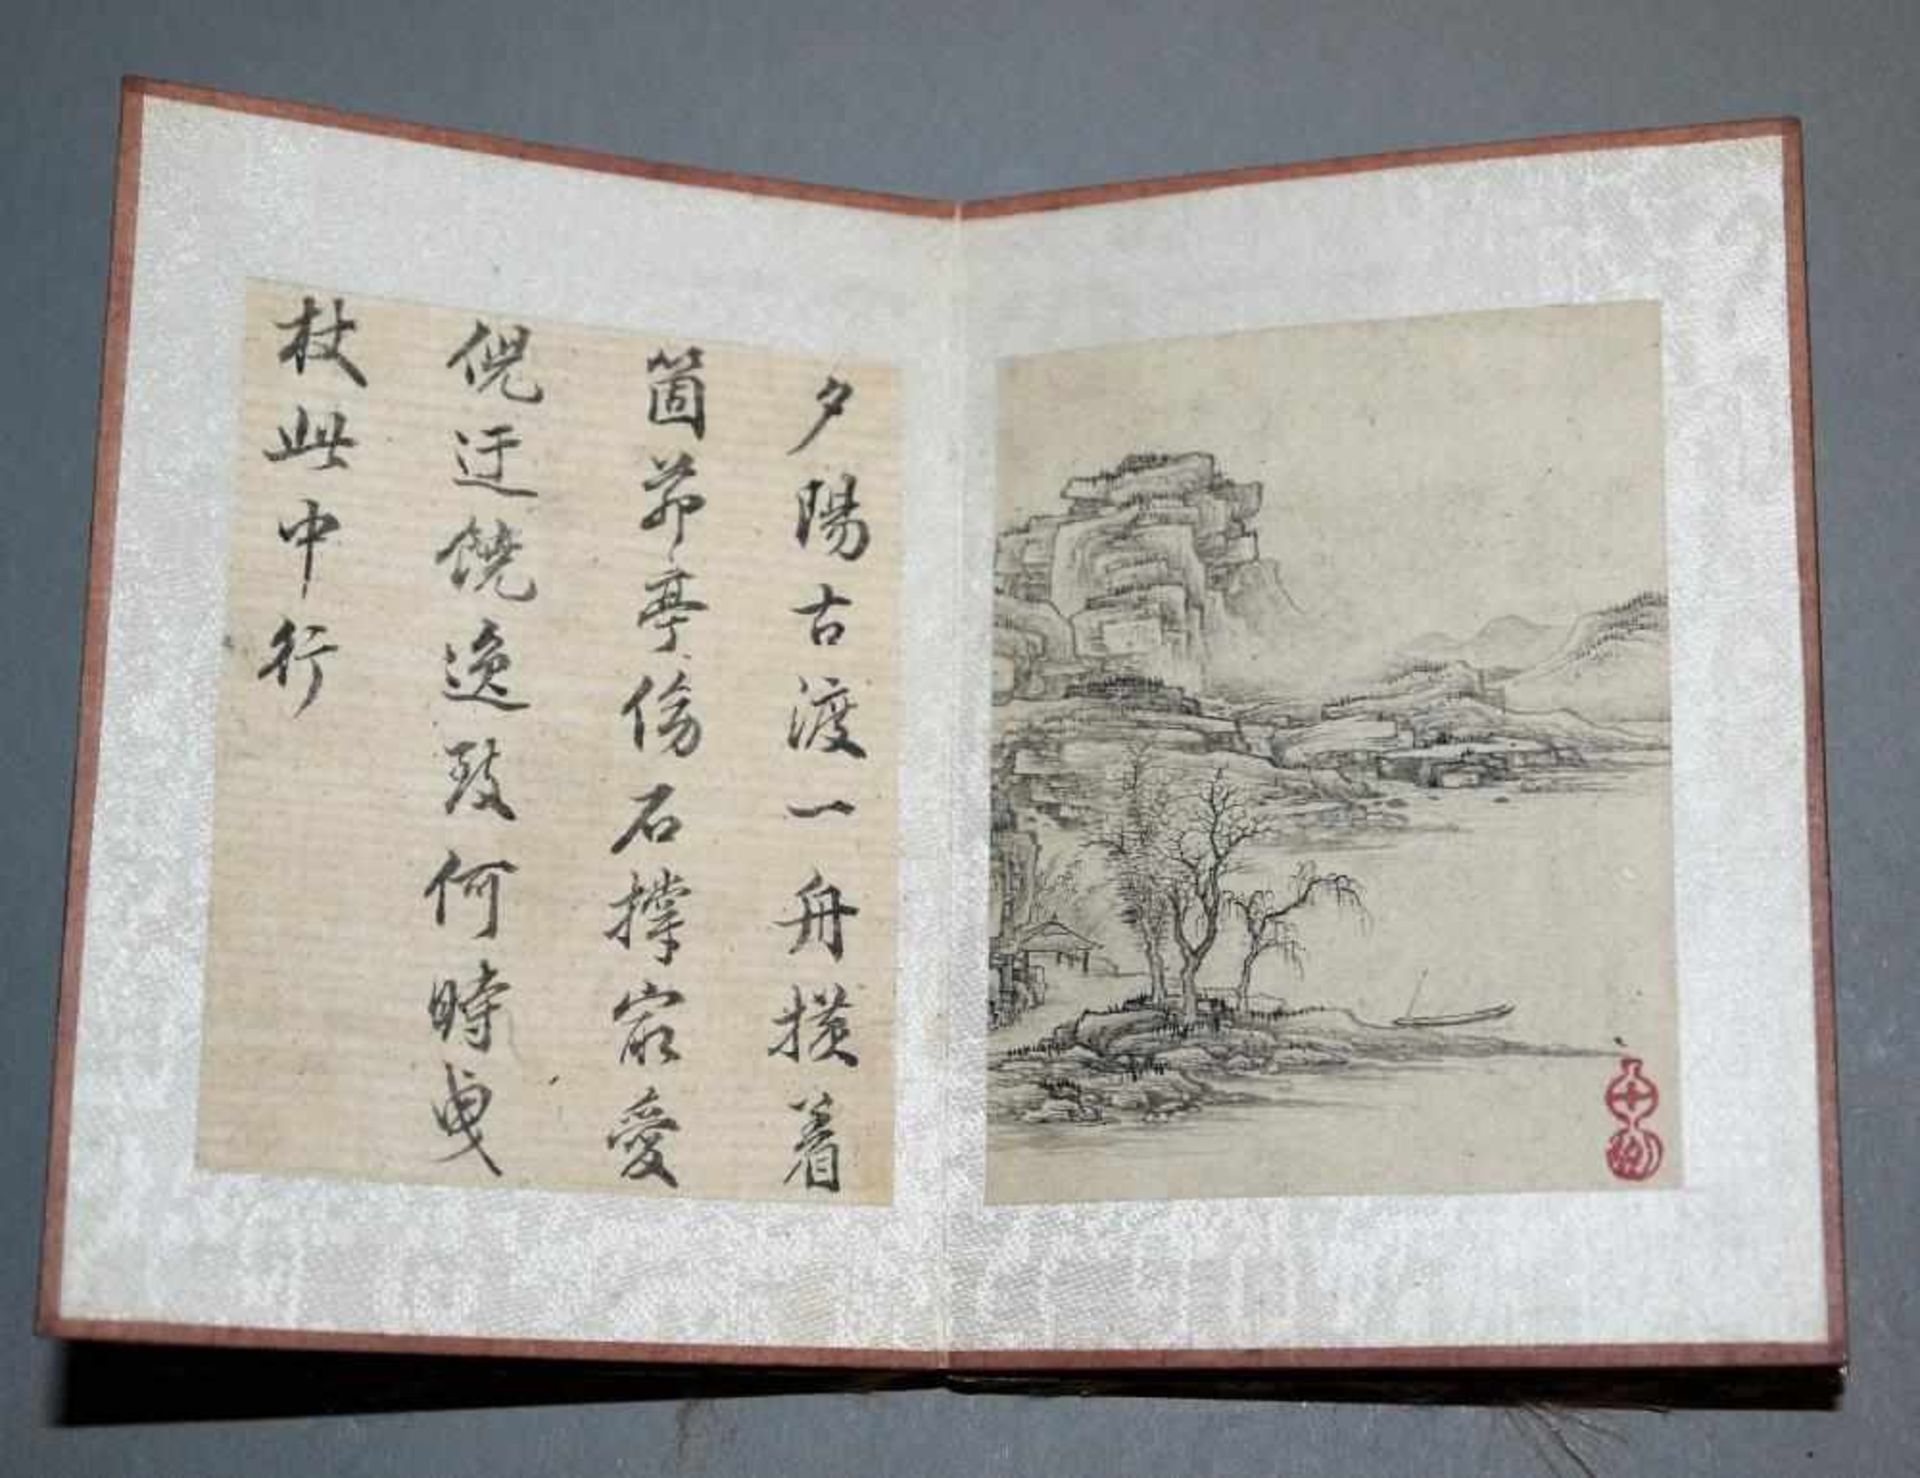 夕陽古渡一舟橫着
箇茆亭傍石撐宷愛
倪迂饒逸致何時曳
杖此中行